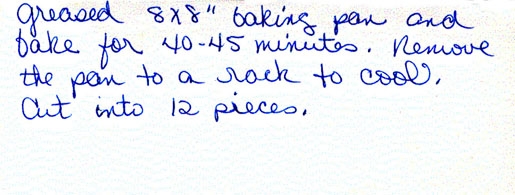 greased 8x8" baking pan and
bake for 40-45 minutes. Remove
the pan to a rack to cool.
Cut into 12 pieces.